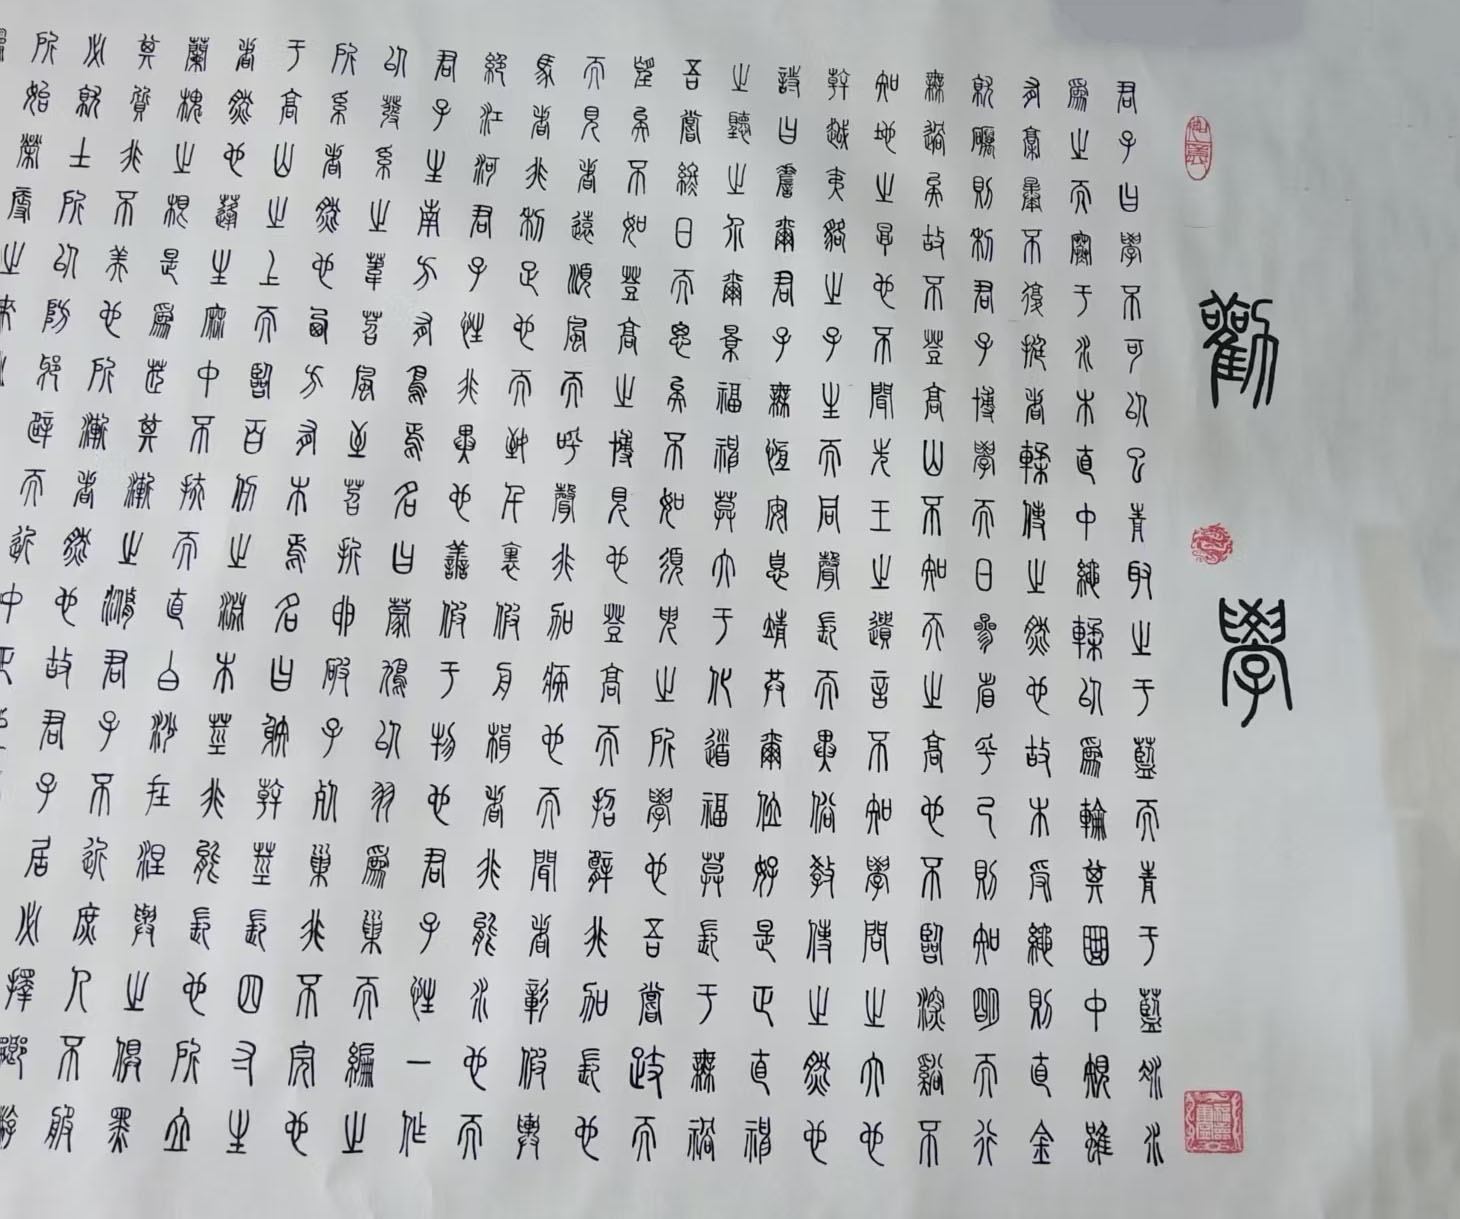 勸學
君子曰學不可以已青取之于藍而青于藍冰水
爲之而寒于水木直中繩輮以爲輪其曲中規雖
有槁暴不復挺者輮使之然也故木受繩則直金
就礪則利君子博學而日參省乎己則知明而行
無過矣故不登高山不知天之高也不臨深谿不
知地之厚也不聞先王之遺言不知學問之大也
幹越夷貉之子生而同聲長而異俗教使之然也
詩曰嗟爾君子無恆安息靖共爾位好是正直神
之聽之介爾景福神莫大于化道福莫長于無禍
吾嘗終日而思矣不如須臾之所學也吾嘗跂而
望矣不如登高之博見也登高而招臂非加長也
而見者遠順風而呼聲非加疾也而聞者彰假輿
馬者非利足也而致千里假舟楫者非能水也而
絕江河君子性非異也善假于物也君子性一作
君子生南方有鳥焉名曰蒙鳩以羽爲巢而編之
以發系之葦苕風至苕折卵破子死巢非不完也
所系者然也西方有木焉名曰射干莖長四寸生
于高山之上而臨百仞之淵木莖非能長也所立
者然也蓬生麻中不扶而直白沙在涅與之俱黑
蘭槐之根是爲芷其漸之滫君子不近庶人不服
其質非不美也所漸者然也故君子居必擇鄉遊
必就士所以防邪辟而近中正
所始榮辱之來